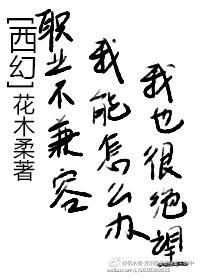 [西幻]花木柔著
职业不兼容
我能怎么办
我也很绝望